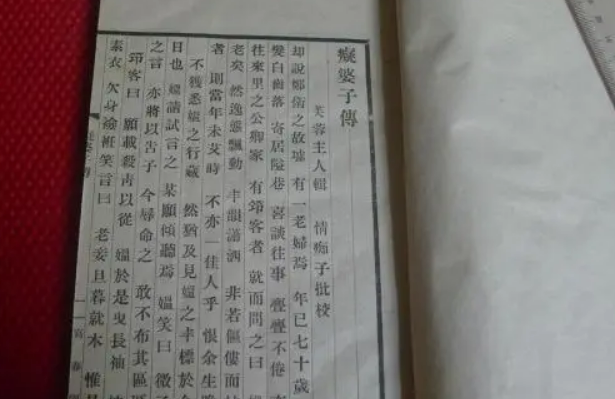 癡婆子傳
芙蓉主人輯 情痴子批校
却說鄭衛之故墟 有一老婦焉 年已七十歲
髮白齒落 寄居隘巷 喜談往事 亹亹不倦
往來里之公卿家 有筇客者 就而問之曰
老矣 然逸態飄動 丰韻瀟洒 非若傴僂而
者 則當年未艾時 不亦一佳人乎 恨余生
不獲悉媼之行藏 然猶及見媼之丰標於
日也 媼請試言之 某願傾聽焉 媼笑曰 微子
之言 亦將以告子 今辱命之 敢不布其區
筇客曰 願載殺靑以從 媼於是曳長袖
素衣 欠身斂袵笑言曰 老妾旦暮就木 惟
寫春